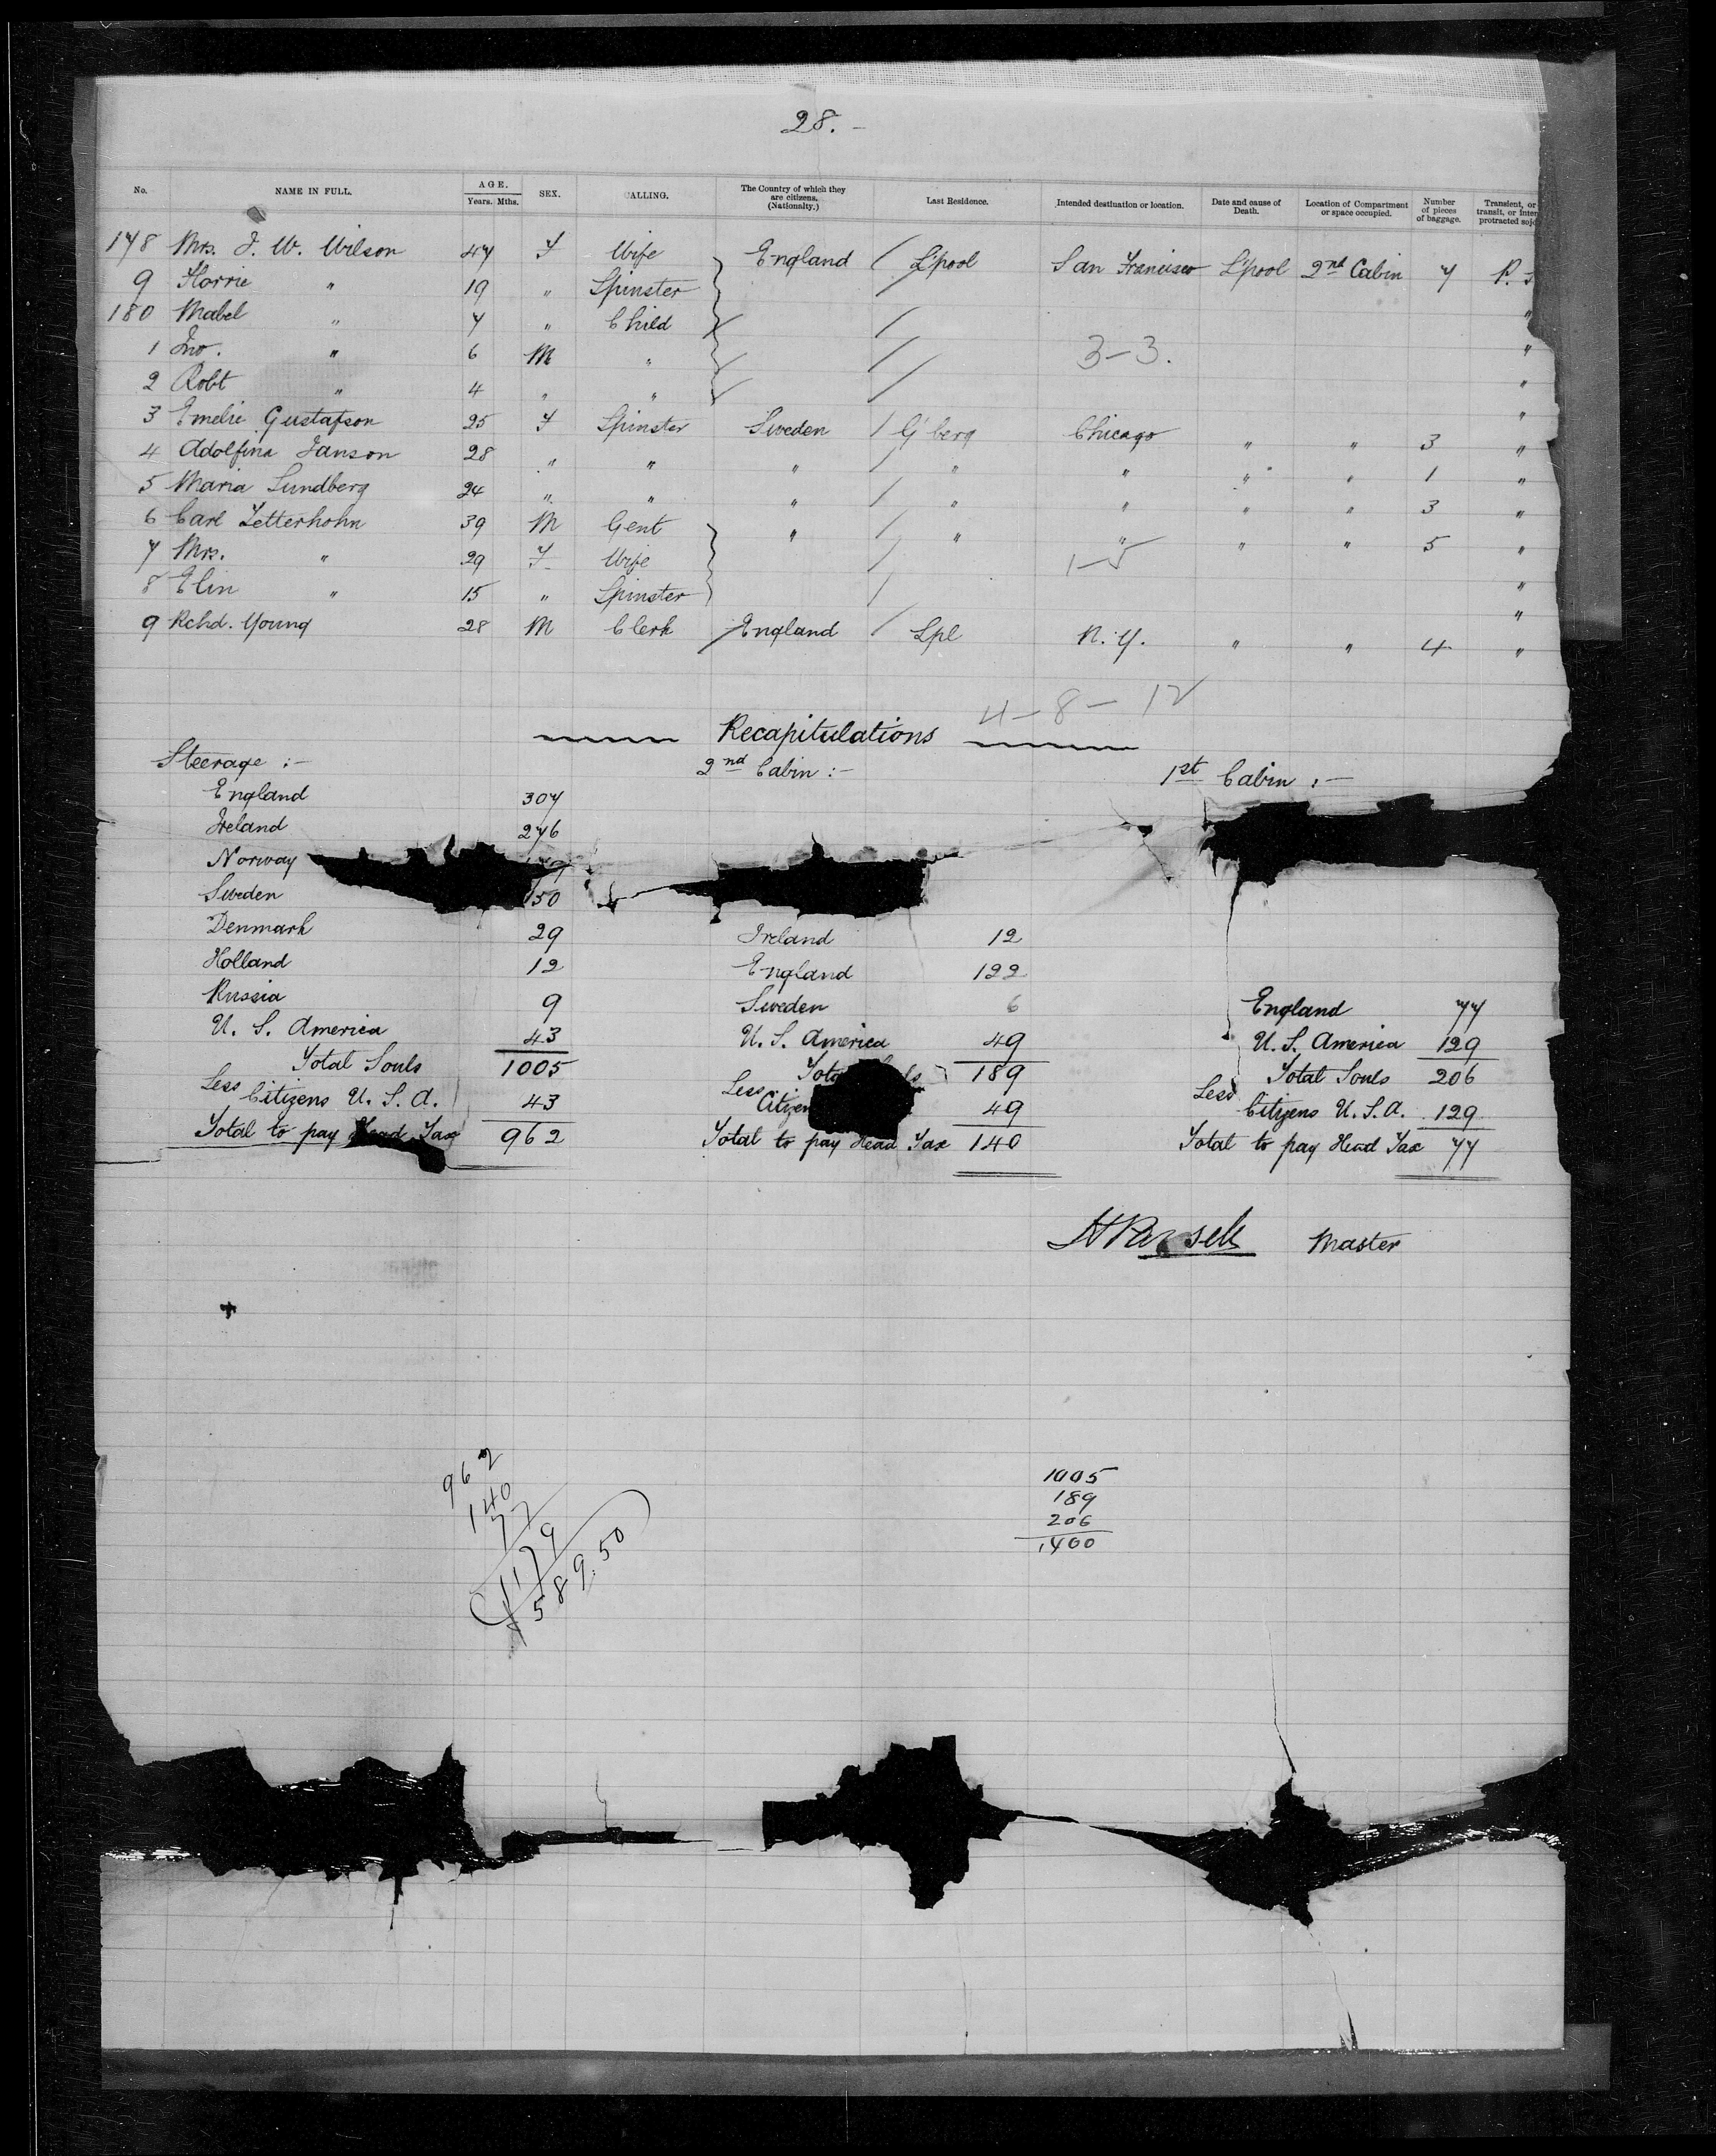 28.-
No. NAME IN FULL. AGE. Years. Mths. SEX. CALLING. The Country of which they are citizens. (Nationalty.) Last Residence. Intended destination or location. Date and cause of Death. Location of Compartment or space occupied. Number of pieces of baggage. Transient, or transit, or inten protracted sojo
178 Mrs. J. W. Wilson 47 F Wife England / L'pool San Francisco L'pool 2nd Cabin 7 P.
9 Florrie " 19 " Spinster /
180 Mabel " 7 " Child / "
1 Jno. " 6 M " / 3-3. "
2 Robt " 4 " " / "
3 Emelie Gustafson 25 F Spinster Sweden / G'berg Chicago " " 3 "
4 Adolfina Janson 28 " " " / " " " " 1 "
5 Maria Lundberg 24 " " " / " " " " 3 "
6 Carl Zetterhohn 39 M Gent " / " " " " 5 "
7 Mrs. " 29 F Wife / 1-5 "
8 Elin " 15 " Spinster / "
9 Rchd. Young 28 M Clerk England / Lpl N.Y. " " 4 "
4-8-12
Recapitulations
Steerage :- 2nd Cabin :- 1st Cabin :-
England 307
Ireland 276
Norway
Sweden 150
Denmark 29 Ireland 12
Holland 12 England 122
Russia 9 Sweden 6 England 77
U. S. America 43 U. S. America 49 U. S. America 129
Total Souls 1005 189 Total Souls 206
Less Citizens U. S. A. 43 Less 49 Less Citizens U. S. A. 129
Total to pay Head Tax 962 Total to pay Head Tax 140 Total to pay Head Tax 77
Master
962
140
77
1179
$589.50
1005
189
206
1400